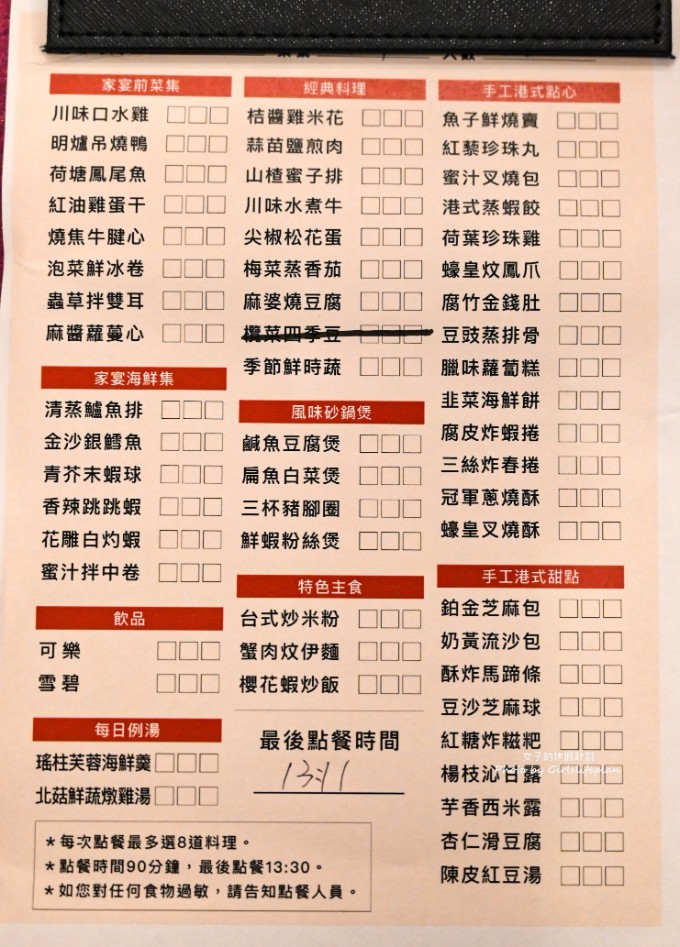 家宴前菜集
川味口水雞
明爐吊燒鴨
荷塘鳳尾魚
紅油雞蛋干
燒焦牛腱心
泡菜鮮冰卷
蟲草拌雙耳
麻醬蘿蔓心
家宴海鮮集
清蒸鱸魚排
金沙銀鱈魚
青芥末蝦球
香辣跳跳蝦
花雕白灼蝦
蜜汁拌中卷
飲品
可樂
雪碧
每日例湯
瑤柱芙蓉海鮮羹
北菇鮮蔬燉雞湯
經典料理
桔醬雞米花
蒜苗鹽煎肉
山楂蜜子排
川味水煮牛
尖椒松花蛋
梅菜蒸香茄
麻婆燒豆腐
欖菜四季豆
季節鮮時蔬
風味砂鍋煲
鹹魚豆腐煲
扁魚白菜煲
三杯豬腳圈
鮮蝦粉絲煲
特色主食
台式炒米粉
蟹肉炆伊麵
櫻花蝦炒飯
最後點餐時間
13:11
手工港式點心
魚子鮮燒賣
紅藜珍珠丸
蜜汁叉燒包
港式蒸蝦餃
荷葉珍珠雞
蠔皇炆鳳爪
腐竹金錢肚
豆豉蒸排骨
臘味蘿蔔糕
韭菜海鮮餅
腐皮炸蝦捲
三絲炸春捲
冠軍蔥燒酥
蠔皇叉燒酥
手工港式甜點
鉑金芝麻包
奶黃流沙包
酥炸馬蹄條
豆沙芝麻球
紅糖炸糍粑
楊枝沁甘露
芋香西米露
杏仁滑豆腐
陳皮紅豆湯
女子的休假計劃
Photo by Girlsifeplan
*每次點餐最多選8道料理。
*點餐時間90分鐘,最後點餐13:30。
*如您對任何食物過敏,請告知點餐人員。